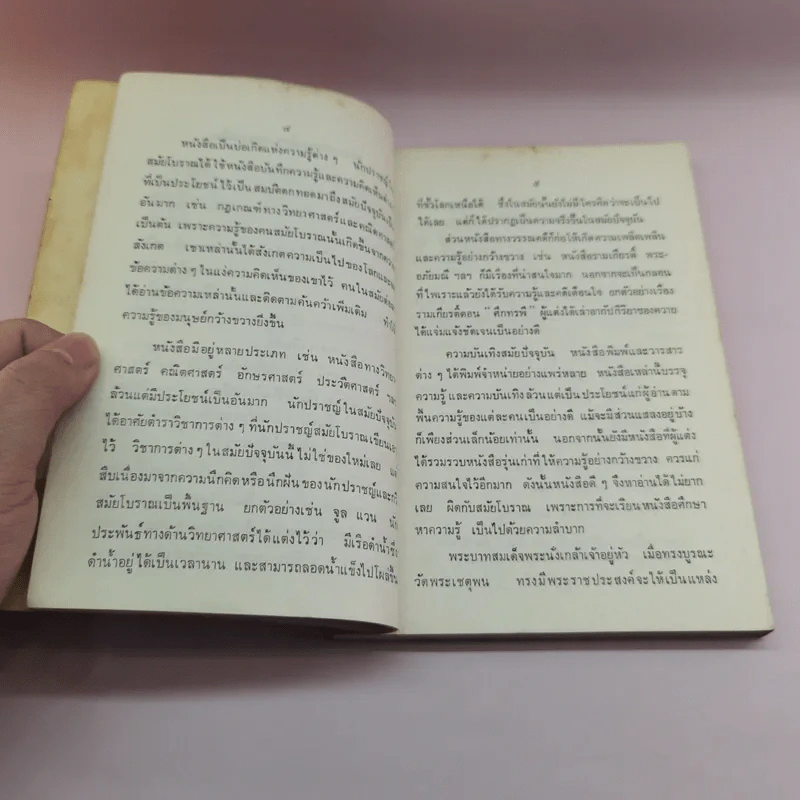 ๗
หนังสือเป็นบ่อเกิดแห่งความรู้ต่าง ๆ นักปราชญ์
สมัยโบราณได้ใช้หนังสือบันทึกความรู้และความคิดเห็นต่าง
ที่เป็นประโยชน์ไว้เป็นสมบัติตกทอดมาถึงสมัยปัจจุบัน
อันมาก เช่น กฎเกณฑ์ทางวิทยาศาสตร์และคณิตศาสตร์
เป็นต้น เพราะความรู้ของคนสมัยโบราณนั้นเกิดขึ้นจาก
สังเกต เขาเหล่านั้นได้สังเกตความเป็นไปของโลกและ
ข้อความต่าง ๆ ในแง่ความคิดเห็นของเขาไว้ คนในสมัย
ได้อ่านข้อความเหล่านั้นและติดตามค้นคว้าเพิ่มเติม ทำให้
ความรู้ของมนุษย์กว้างขวางยิ่งขึ้น
หนังสือมีอยู่หลายประเภท เช่น หนังสือทางวิทยา
ศาสตร์ คณิตศาสตร์ อักษรศาสตร์ ประวัติศาสตร์ ฯลฯ
ล้วนแต่มีประโยชน์เป็นอันมาก นักปราชญ์ในสมัยปัจจุบัน
ได้อาศัยตำราวิชาการต่าง ๆ ที่นักปราชญ์สมัยโบราณเขียน
ไว้ วิชาการต่าง ๆ ในสมัยปัจจุบันนี้ ไม่ใช่ของใหม่เลย
สืบเนื่องมาจากความนึกคิดหรือนึกฝันของนักปราชญ์และ
สมัยโบราณเป็นพื้นฐาน ยกตัวอย่างเช่น จูล แวน นัก
ประพันธ์ทางด้านวิทยาศาสตร์ได้แต่งไว้ว่า มีเรือดำน้ำซึ่ง
ดำน้ำอยู่ได้เป็นเวลานาน และสามารถลอดน้ำแข็งไปโผล่ขึ้น
๘
ที่ขั้วโลกเหนือได้ ซึ่งในสมัยนั้นยังไม่มีใครคิดว่าจะเป็นไป
ได้เลย แต่ก็ได้ปรากฏเป็นความจริงขึ้นในสมัยปัจจุบัน
ส่วนหนังสือทางวรรณคดีก็ก่อให้เกิดความเพลิดเพลิน
และความรู้อย่างกว้างขวาง เช่น หนังสือรามเกียรติ์ พระ-
อภัยมณี ฯลฯ ก็มีเรื่องที่น่าสนใจมาก นอกจากจะเป็นกลอน
ที่ไพเราะแล้วยังได้รับความรู้และคติเตือนใจ ยกตัวอย่างเรื่อง
รามเกียรติ์ตอน "ศึกทรพี" ผู้แต่งได้เล่าอากัปกิริยาของควาย
ได้แจ่มแจ้งชัดเจนเป็นอย่างดี
ความบันเทิงสมัยปัจจุบัน หนังสือพิมพ์และวารสาร
ต่าง ๆ ได้พิมพ์จำหน่ายอย่างแพร่หลาย หนังสือเหล่านั้นบรรจุ
ความรู้ และความบันเทิงล้วนแต่เป็นประโยชน์แก่ผู้อ่านตาม
พื้นความรู้ของแต่ละคนเป็นอย่างดี แม้จะมีส่วนแสลงอยู่บ้าง
ก็เพียงส่วนเล็กน้อยเท่านั้น นอกจากนั้นยังมีหนังสือที่ผู้แต่ง
ได้รวมรวบหนังสือรุ่นเก่าที่ให้ความรู้อย่างกว้างขวาง ควรแก่
ความสนใจไว้อีกมาก ดังนั้นหนังสือดี ๆ จึงหาอ่านได้ไม่ยาก
เลย ผิดกับสมัยโบราณ เพราะการที่จะเรียนหนังสือศึกษา
หาความรู้ เป็นไปด้วยความลำบาก
พระบาทสมเด็จพระนั่งเกล้าเจ้าอยู่หัว เมื่อทรงบูรณะ
วัดพระเชตุพน ทรงมีพระราชประสงค์จะให้เป็นแหล่ง